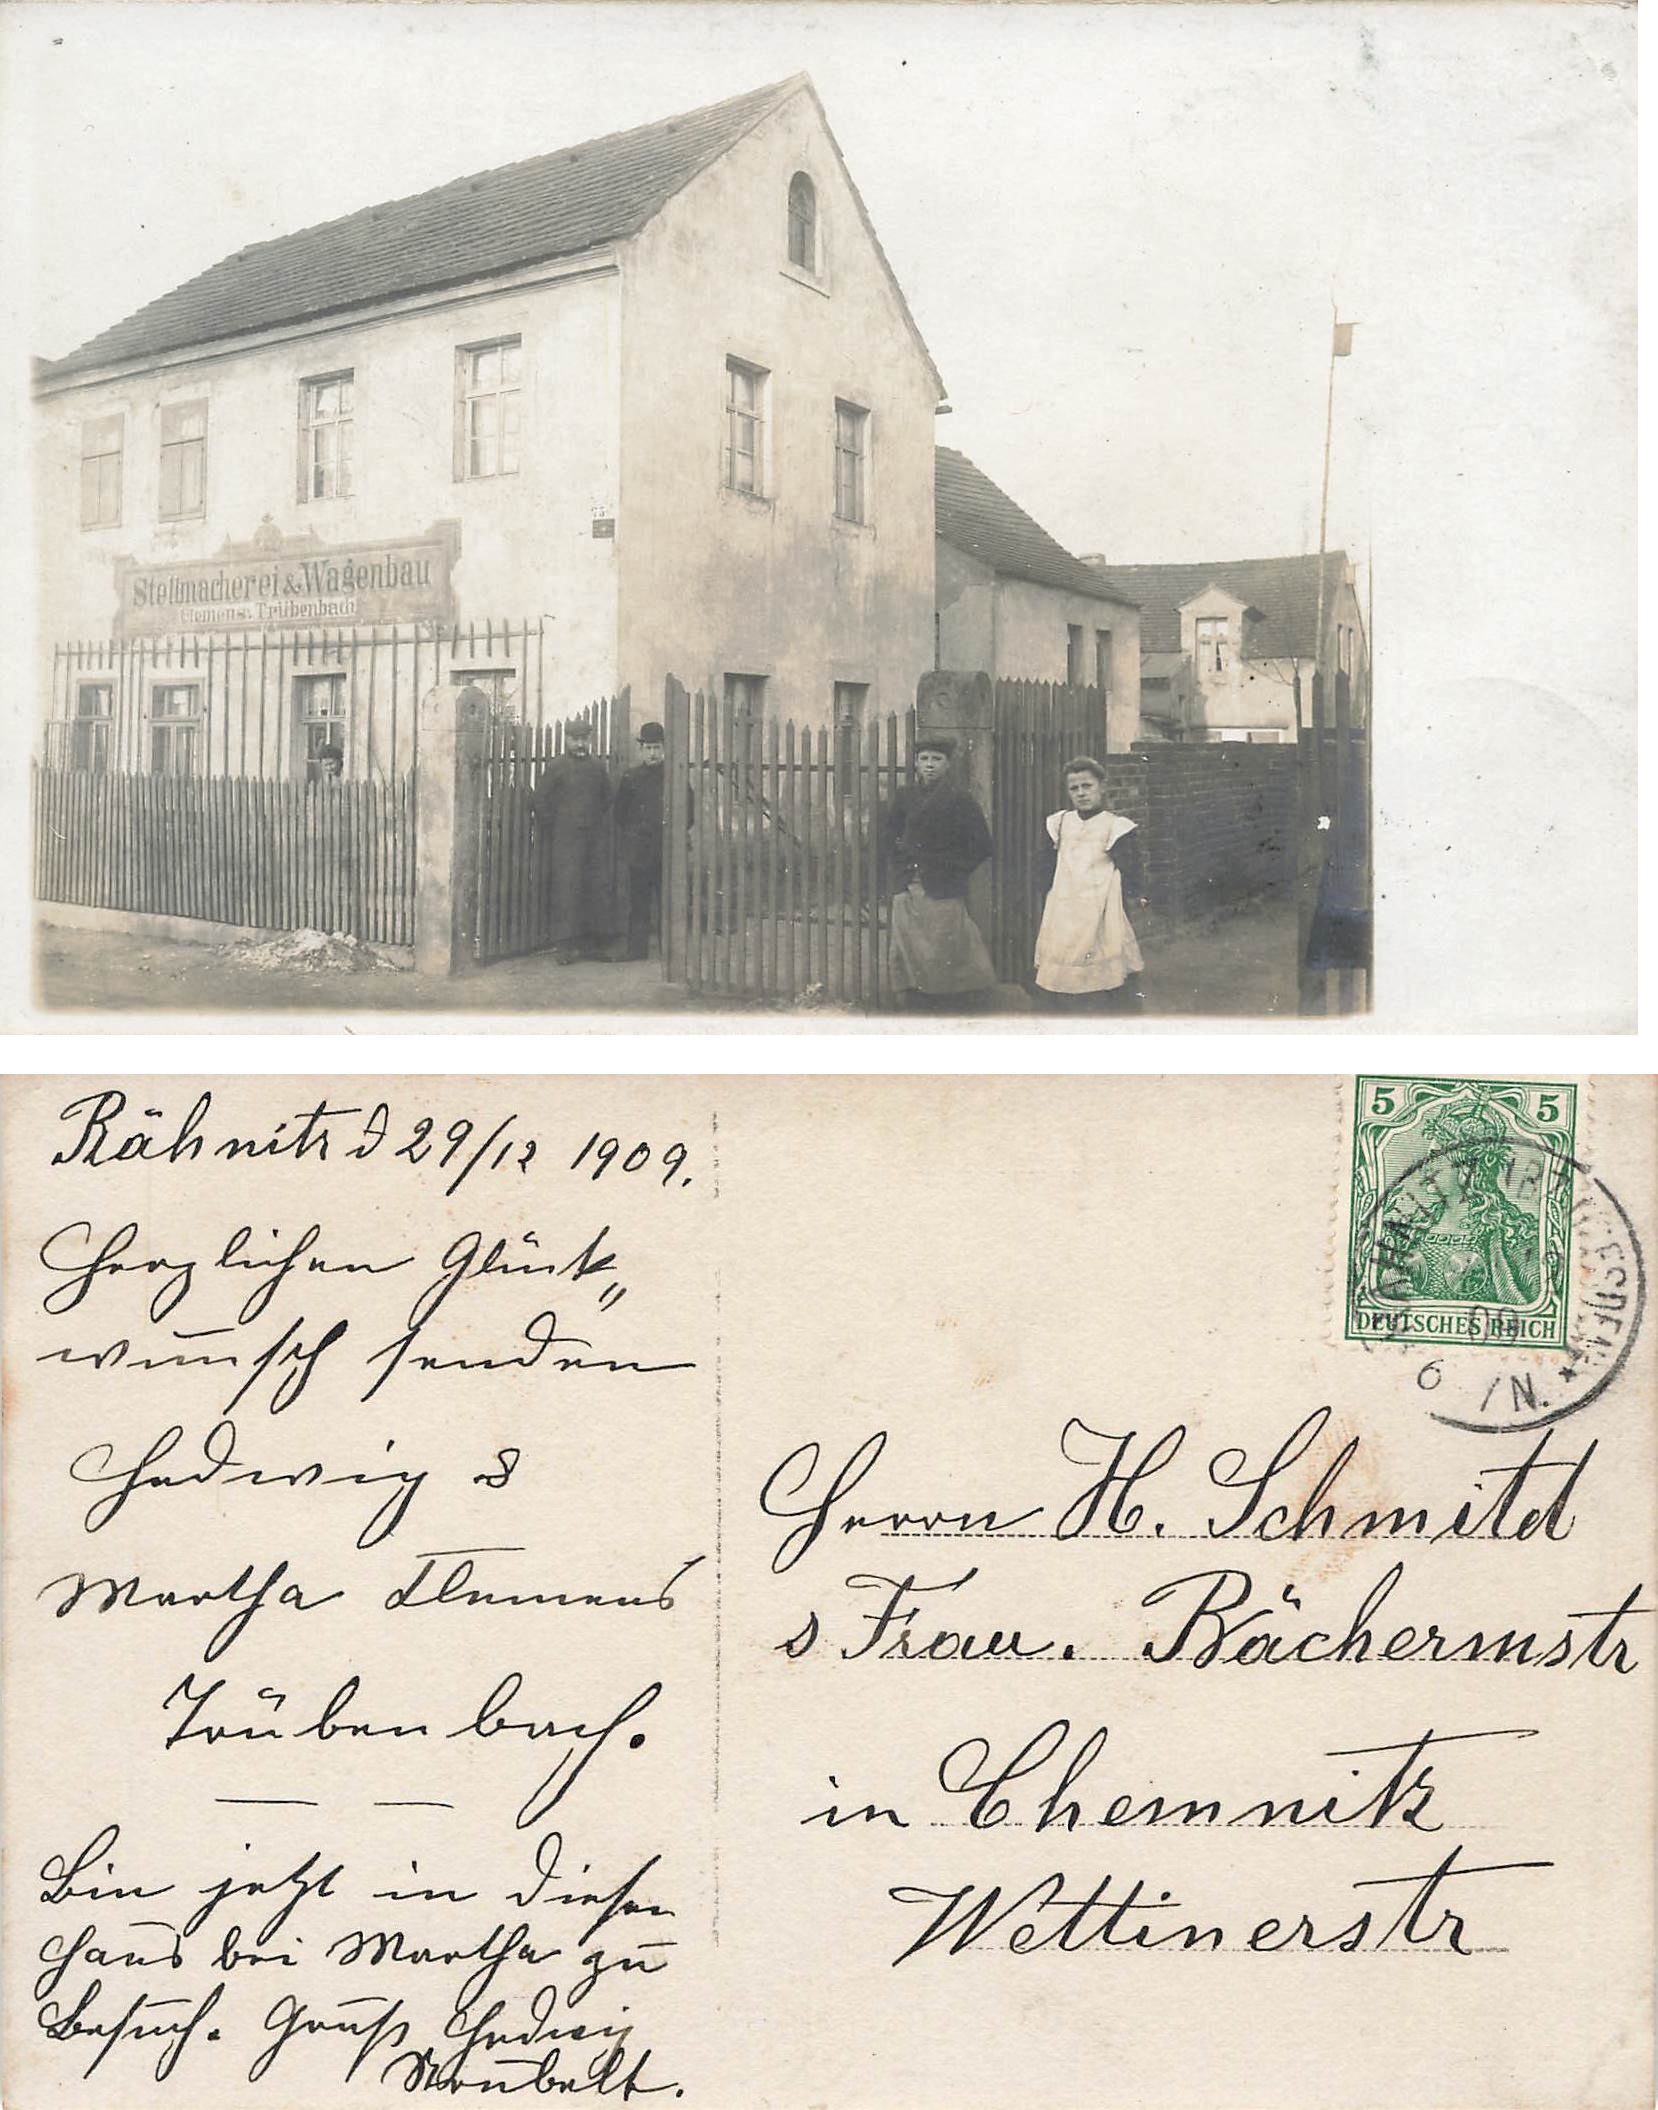 75
Stellmacherei & Wagenbau
Clemens Trübenbach
Rähnitz d 29/12 1909.
Herzlichen Glück„
wunsch senden
Hedwig &
Martha Clemens
Trübenbach.
Bin jetzt in diesen
Haus bei Martha zu
Besuch. Gruß Hedwig
Neubelt.
5 5
DEUTSCHES REICH
6 /N.
Herrn H. Schmitd
& Frau. Bächermstr
in Chemnitz
Wettinerstr